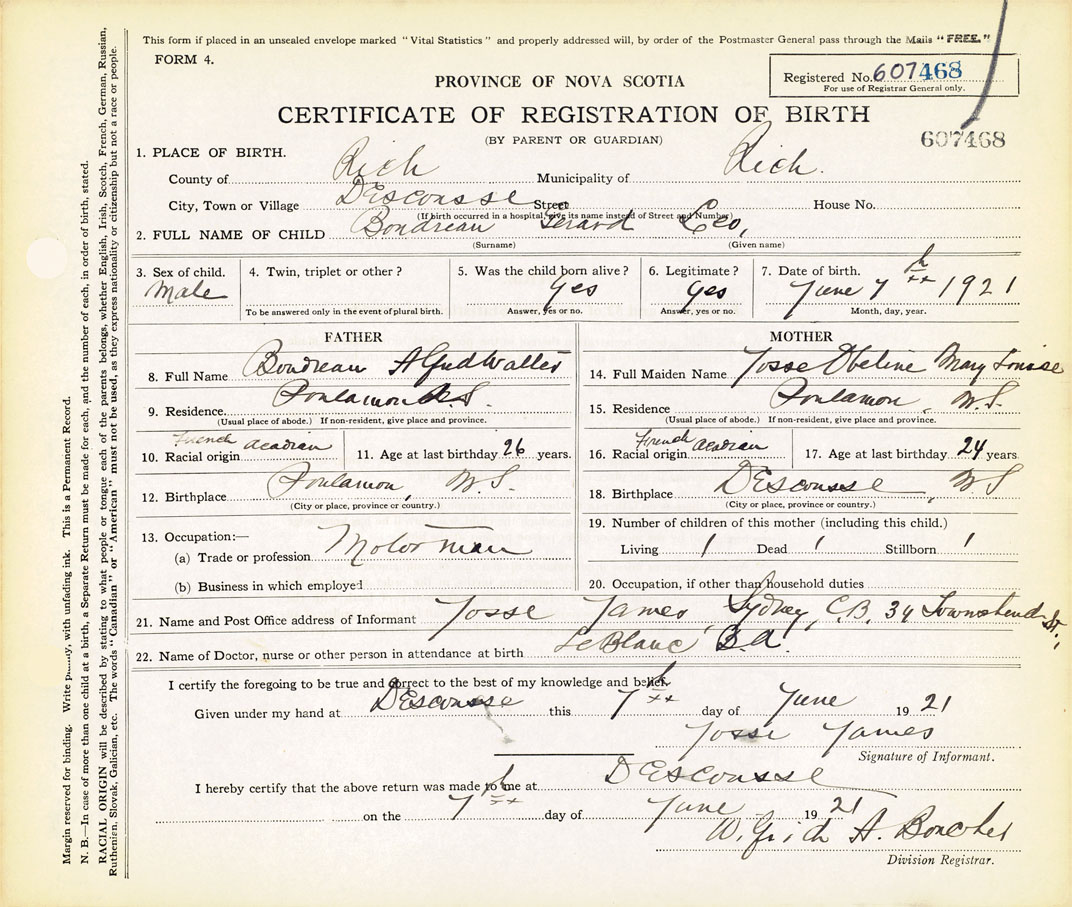 This form if placed in an unsealed envelope marked "Vital Statistics" and properly addressed will, by order of the Postmaster General pass through the Mails "FREE."
FORM 4.
Registered No. 607468
For use of Registrar General only.
PROVINCE OF NOVA SCOTIA
CERTIFICATE OF REGISTRATION OF BIRTH
(BY PARENT OR GUARDIAN)
607468
1. PLACE OF BIRTH.
County of Rich Municipality of Rich.
City, Town or Village DEscousse Street House No.
(If birth occurred in a hospital, give its name instead of Street and Number)
2. FULL NAME OF CHILD Boudreau Gerard Leo,
(Surname) (Given name)
3. Sex of child. Male
4. Twin, triplet or other?
To be answered only in the event of plural birth.
5. Was the child born alive? Yes
Answer, yes or no.
6. Legitimate? Yes
Answer, yes or no.
7. Date of birth. June 7th 1921
Month, day, year.
FATHER
8. Full Name Boudreau Alfred Walter
9. Residence. Poulamon N.S.
(Usual place of abode.) If non-resident, give place and province.
10. Racial origin French Acadian
11. Age at last birthday 26 years.
12. Birthplace Poulamon, N.S.
(City or place, province or country.)
13. Occupation:—
(a) Trade or profession Motorman
(b) Business in which employed
MOTHER
14. Full Maiden Name Josse Obeline Mary Louise
15. Residence Poulamon, N.S.
(Usual place of abode.) If non-resident, give place and province.
16. Racial origin French Acadian
17. Age at last birthday 24 years
18. Birthplace DEscousse, N.S
(City or place, province or country.)
19. Number of children of this mother (including this child.)
Living / Dead / Stillborn /
20. Occupation, if other than household duties
21. Name and Post Office address of Informant Josse James, Sydney, C.B. 34 Townshend St.,
22. Name of Doctor, nurse or other person in attendance at birth LeBlanc B.A.
I certify the foregoing to be true and correct to the best of my knowledge and belief.
Given under my hand at DEscousse this 7th day of June 1921
Josse James
Signature of Informant.
I hereby certify that the above return was made to me at DEscousse
on the 7th day of June 1921
A. Boucher
Division Registrar.
Margin reserved for binding. Write plainly, with unfading ink. This is a Permanent Record.
N. B.—In case of more than one child at a birth, a Separate Return must be made for each, and the number of each, in order of birth, stated.
RACIAL ORIGIN will be described by stating to what people or tongue each of the parents belongs, whether English, Irish, Scotch, French, German, Russian,
Ruthenian, Slovak, Galician, etc. The words "Canadian" or "American" must not be used, as they express nationality or citizenship but not a race or people.